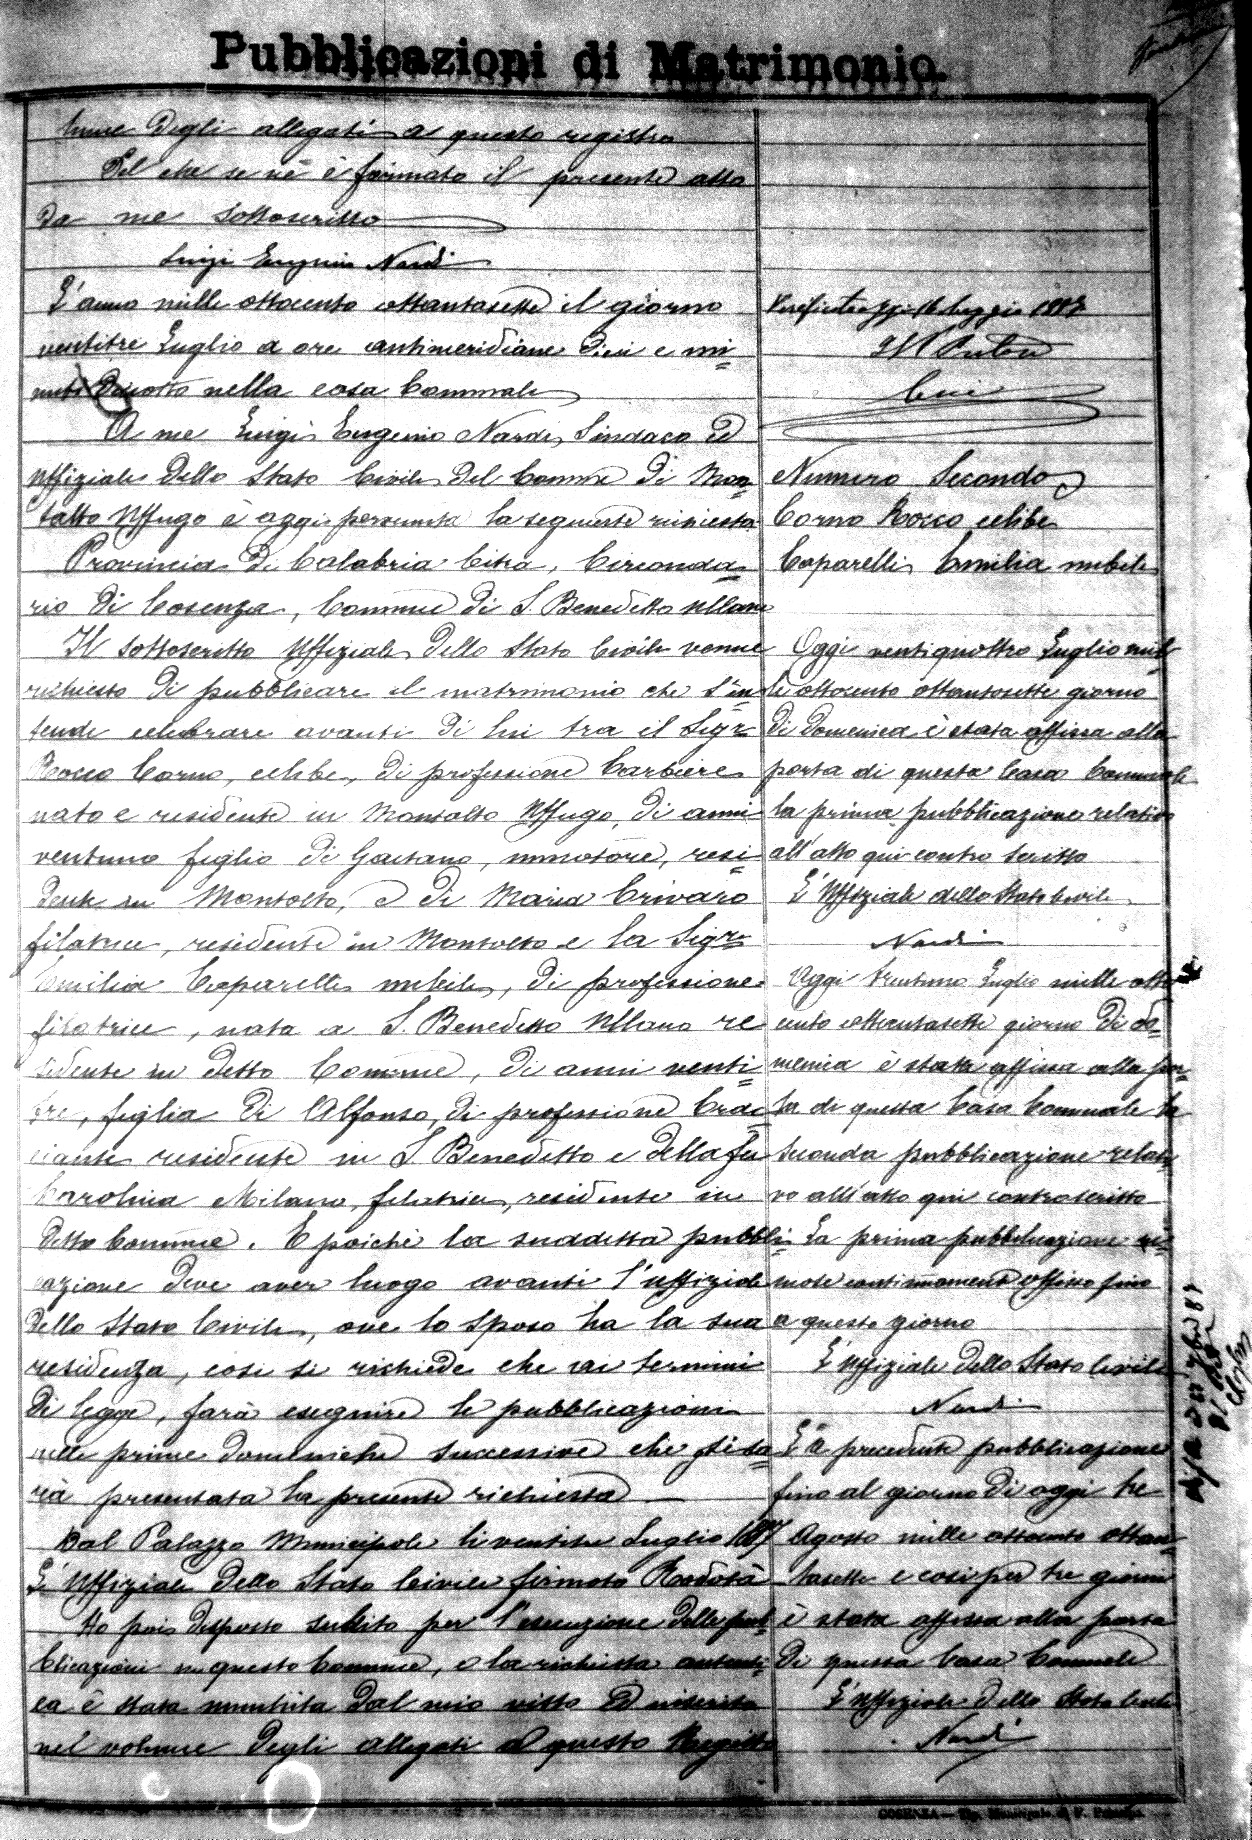 Pubblicazioni di Matrimonio.
lume degli allegati a questo registro
Del che se n'è formato il presente atto
da me sottoscritto
Luigi Eugenio Nardi
L'anno mille ottocento ottantasette il giorno
ventitre Luglio a ore antimeridiane dieci e mi=
nuti diciotto nella casa Comunale
A me Luigi Eugenio Nardi, Sindaco ed
Uffiziale dello Stato Civile del Comune di Mon=
talto Uffugo è oggi pervenuta la seguente richiesta
Provincia di Calabria Citra, Circonda=
rio di Cosenza, Comune di S. Benedetto Ullano
Il sottoscritto Uffiziale dello Stato Civile venne
richiesto di pubblicare il matrimonio che s'in=
tende celebrare avanti di lui tra il Sigr
Rocco Corno, celibe, di professione barbiere
nato e residente in Montalto Uffugo, di anni
ventuno figlio di Gaetano, resi=
dente in Montalto, e di Maria Crivaro
filatrice, residente in Montalto e la Sigra
Emilia Caparelli nubile, di professione
filatrice, nata a S. Benedetto Ullano re
sidente in detto Comune, di anni venti=
tre, figlia di Alfonso, di professione brac=
ciante residente in S. Benedetto e della fu
Carolina Milano, filatrice, residente in
detto Comune. E poichè la suddetta pubbli=
cazione deve aver luogo avanti l'uffiziale
dello Stato Civile, ove lo sposo ha la sua
residenza, così si richiede che ai termini
di legge, farà eseguire le pubblicazioni
nelle prime domeniche successive che gli sa=
rà presentata la presente richiesta
Dal Palazzo Municipale li ventitre Luglio 1887
L'Uffiziale dello Stato Civile firmato Rodotà
Ho poi disposto subito per l'esecuzione delle pub=
blicazioni in questo Comune, e la richiesta autenti=
ca è stata munita dal mio visto ed inserita
nel volume degli allegati a questo Registro
Verificato oggi 16 Luglio 1887
Il Pretore
Numero Secondo
Corno Rocco celibe
Caparelli Emilia nubile
Oggi ventiquattro Luglio mil=
le ottocento ottantasette giorno
di domenica è stata affissa alla
porta di questa Casa Comunale
la prima pubblicazione relativa
all'atto qui contro scritto
L'Uffiziale dello Stato Civile
Nardi
Oggi trentuno Luglio mille otto
cento ottantasette giorno di do=
menica è stata affissa alla por=
ta di questa Casa Comunale la
seconda pubblicazione relati=
vo all'atto qui controscritto
La prima pubblicazione ri=
mase continuamente affissa fino
a questo giorno
L'Uffiziale dello Stato Civile
Nardi
La precedente pubblicazione
fino al giorno di oggi tre
Agosto mille ottocento ottan=
tasette e così per tre giorni
è stata affissa alla porta
di questa Casa Comunale
L'Uffiziale dello Stato Civile
Nardi
COSENZA — Tip. Municipale di F. Principe.